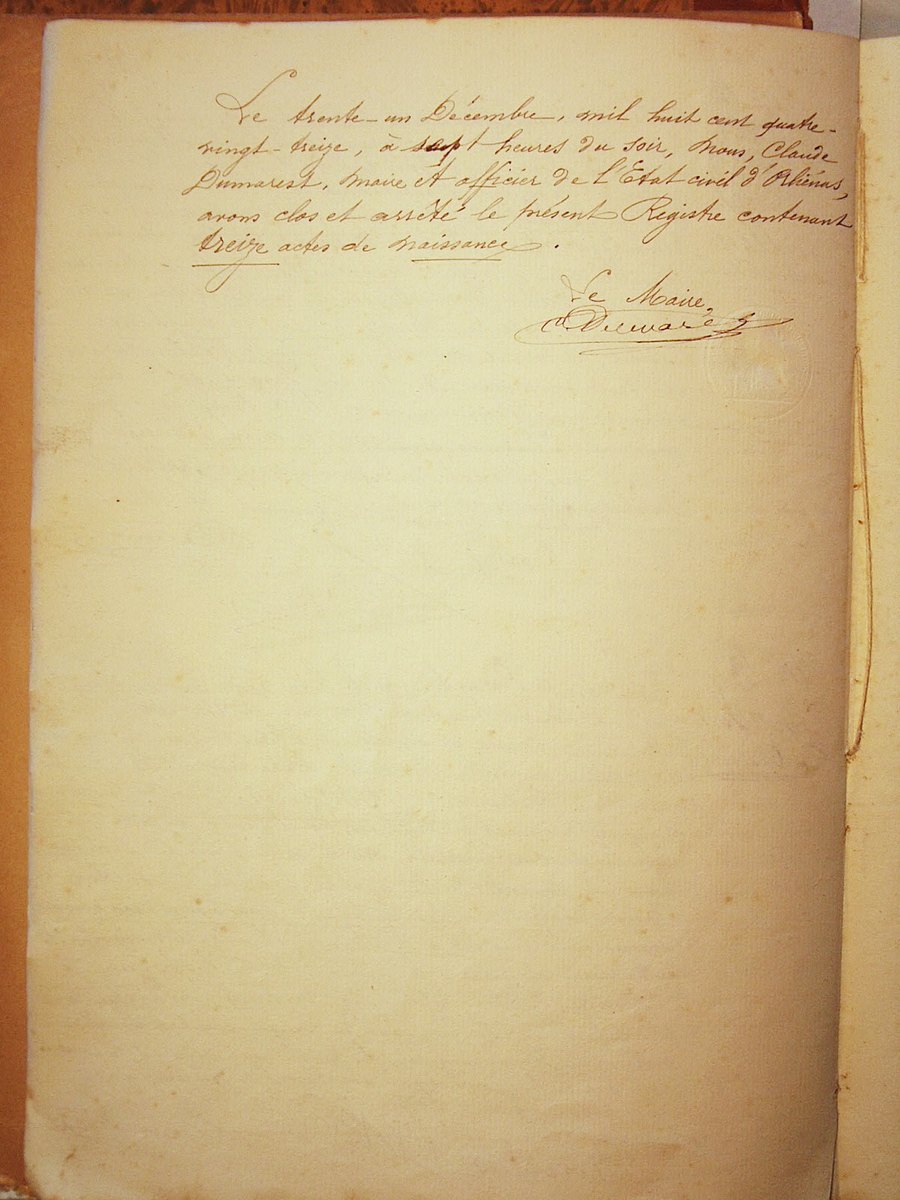 Le trente-un Décembre, mil huit cent quatre-
vingt-treize, à sept heures du soir, Nous, Claude
Dumarest, Maire et officier de l'Etat civil d'Arhénas,
avons clos et arrêté le présent Registre contenant
treize actes de naissance.
Le Maire,